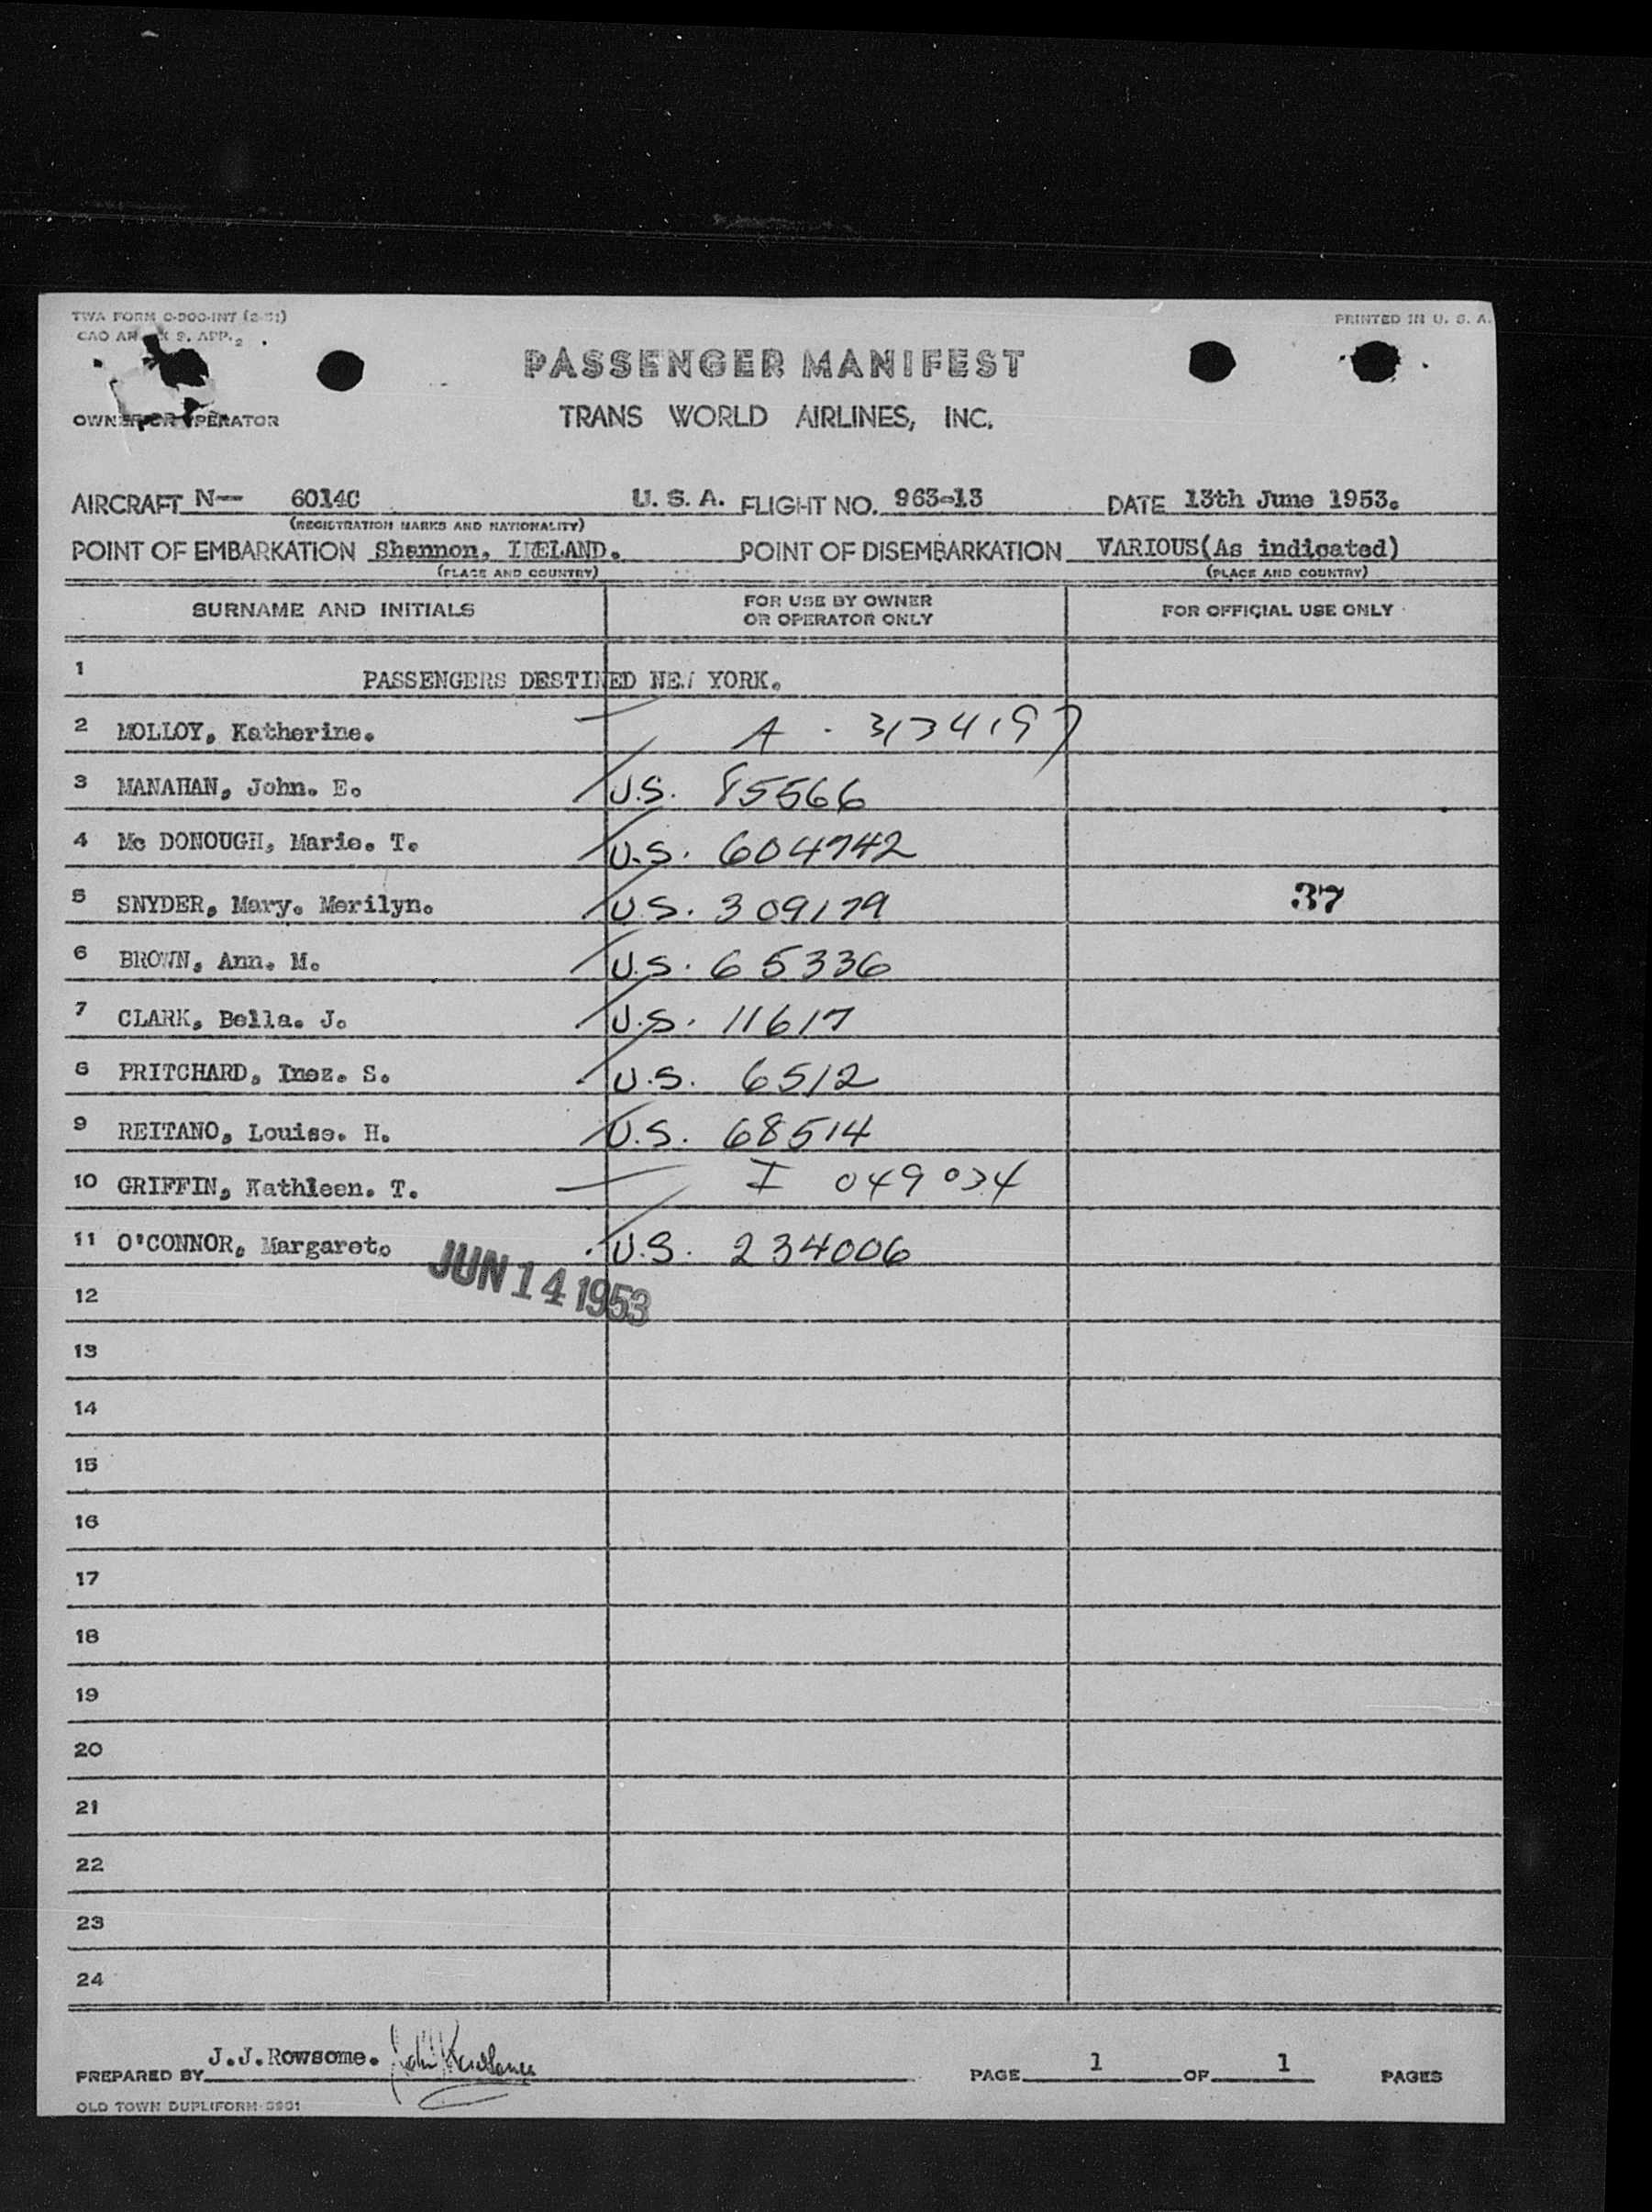 TWA FORM O-900-INT (2-51)
PRINTED IN U. S. A.
PASSENGER MANIFEST
OWNER OR OPERATOR
TRANS WORLD AIRLINES, INC.
AIRCRAFT N— 6014C U. S. A. FLIGHT NO. 963-13 DATE 13th June 1953.
(REGISTRATION MARKS AND NATIONALITY)
POINT OF EMBARKATION Shannon, IRELAND. POINT OF DISEMBARKATION VARIOUS(As indicated)
(PLACE AND COUNTRY) (PLACE AND COUNTRY)
SURNAME AND INITIALS FOR USE BY OWNER OR OPERATOR ONLY FOR OFFICIAL USE ONLY
1 PASSENGERS DESTINED NEW YORK.
2 MOLLOY, Katherine. A - 3134197
3 MANAHAN, John. E. U.S. 85566
4 Mc DONOUGH, Marie. T. U.S. 604742
5 SNYDER, Mary. Merilyn. U.S. 309179 37
6 BROWN, Ann. M. U.S. 65336
7 CLARK, Bella. J. U.S. 11617
8 PRITCHARD, Inez. S. U.S. 6512
9 REITANO, Louise. H. U.S. 68514
10 GRIFFIN, Kathleen. T. I 049034
11 O'CONNOR, Margaret. U.S. 234006
JUN 14 1953
12
13
14
15
16
17
18
19
20
21
22
23
24
PREPARED BY J.J.Rowsome. PAGE 1 OF 1 PAGES
OLD TOWN DUPLIFORM